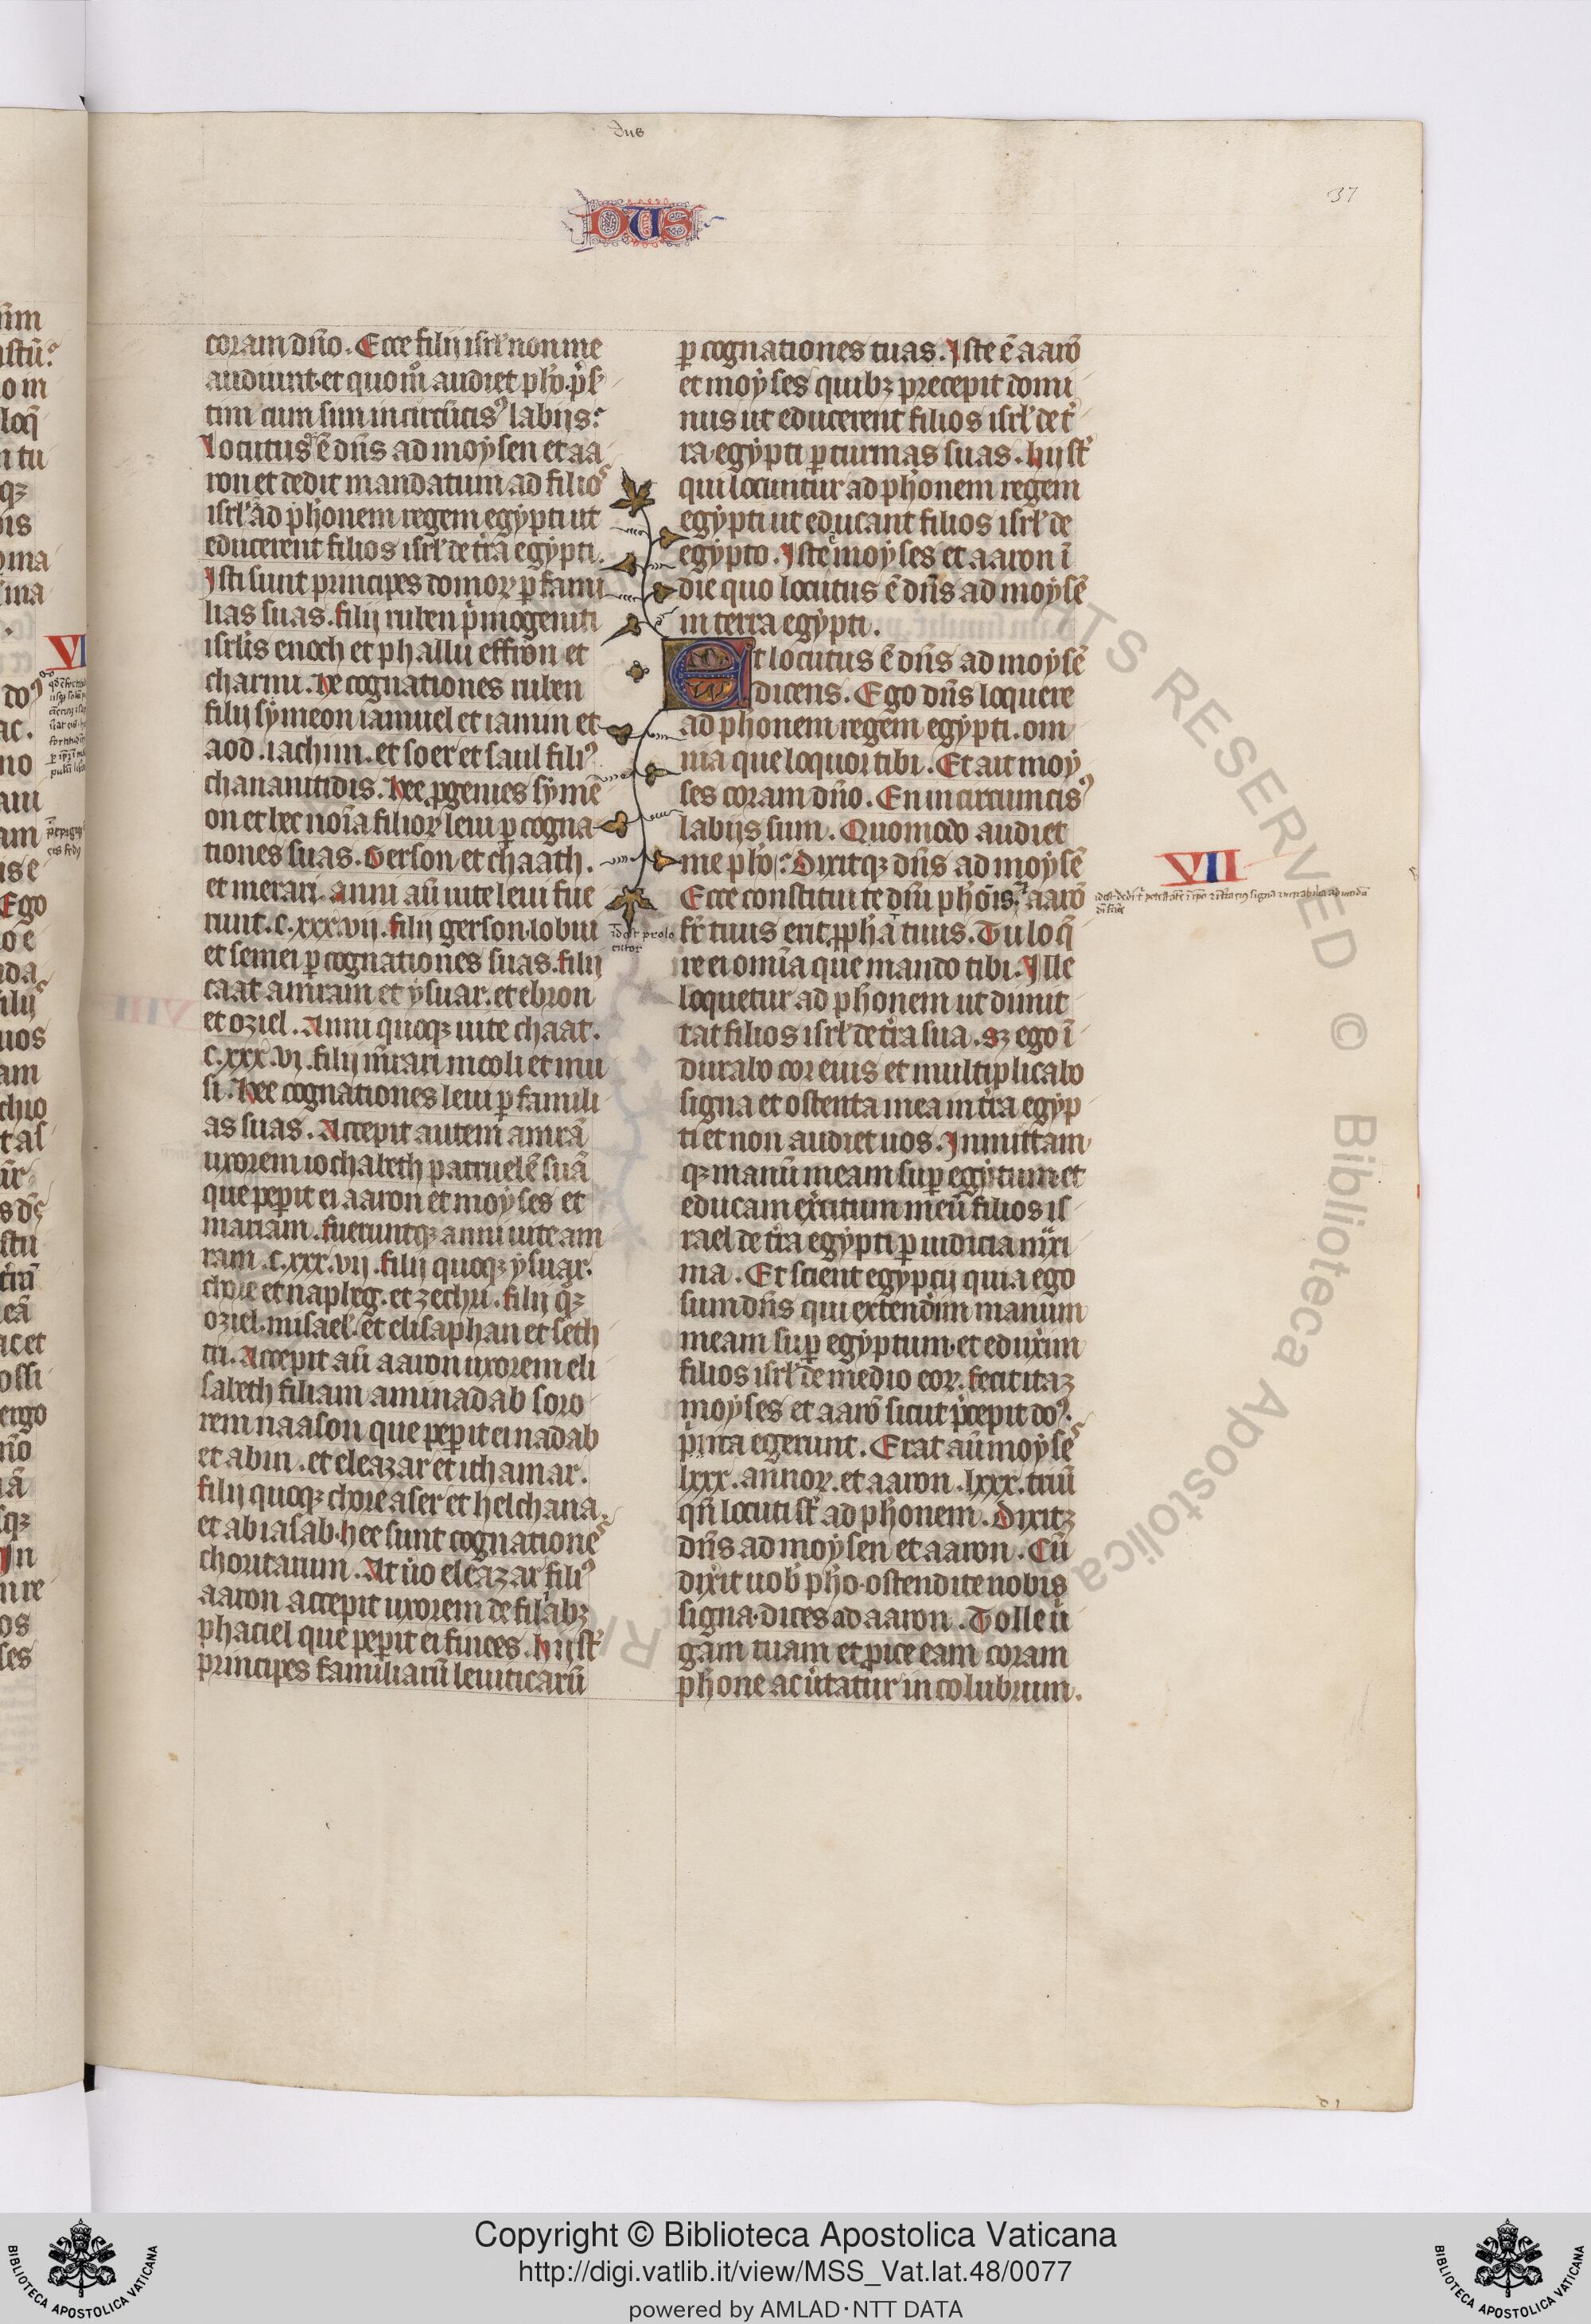 dus
DUS
37
coram dño. Ecce filij isrl' non me
audiunt. et quom̊ audiet phͦ. p̃s
tim cum sim incircũcisꝰ labijs:
Locutusꝗ ẽ dñs ad moẏsen et aa
ron et dedit mandatum ad filios
isrl' ad phͦonem regem egẏpti ut
educerent filios isrl' de tr̃a egẏpti.
Isti sunt principes domoꝝ ꝑ fami
lias suas. filij ruben pⁱmogeniti
isrl'is enoch et phallu effron et
charmi. he cognationes ruben
filij sẏmeon iamuel et iamin et
aod. iachim. et soer et saul filiꝰ
chananitidis. hec ꝓgenies sẏmẽ
on et hec noĩa filioꝝ leui ꝑ cogna
tiones suas. Gerson et chaath.
et merari. anni aũ uite leui fue
runt. c.xxx.vij. filij gerson. lobni
et semei ꝑ cognationes suas. filij
caat amram et ẏsuar. et ebron
et oziel. Anni quoqꝫ uite chaat.
c.xxx.vj. filij m̃rari mooli et mu
si. hee cognationes leui ꝑ famili
as suas. Accepit autem amrã
uxorem iochabeth patruelẽ suã
que peperit ei aaron et moẏses et
mariam. fueruntqꝫ anni uite am
ram .c.xxx.vij. filij quoqꝫ ẏsuar.
chore et napheg. et zechri. filij qͦqꝫ
oziel. misael. et elisaphan et seth
tri. Accepit aũ aaron uxorem eli
sabeth filiam aminadab soro
rem naason que peꝑit ei nadab
et abiu. et eleazar et ithamar.
filij quoqꝫ chore aser et helchana.
et abiasab. hee sunt cognationes
choritarum. At ũo eleazar filiꝰ
aaron accepit uxorem de filiabꝫ
phatiel que peꝑit ei finees. hij st̃
principes familiarũ leuiticarũ
ꝑ cognationes suas. Iste ẽ aarõ
et moẏses quibꝫ precepit domi
nus ut educerent filios isrl' de t̃
ra egẏpti ꝑ turmas suas. hij st̃
qui locuntur ad phͦonem regem
egẏpti ut educant filios isrl' de
egẏpto. Iste moẏses et aaron ĩ
die quo locutus ẽ dñs ad moẏsẽ
in terra egẏpti.
Et locutus ẽ dñs ad moẏsẽ
dicens. Ego dñs loquere
ad phͦonem regem egẏpti. om
nia que loquor tibi. Et ait moẏ
ses coram dño. En incircuncisꝰ
labijs sum. Quomodo audiet
me phͦ: Dixitqꝫ dñs ad moẏsẽ
Ecce constitui te dm̃ phͦõis. aarõ
fr̃ tuus erit ꝓpha tuus. Tu loq̃
re ei omĩa que mando tibi. Ille
loquetur ad phͦonem ut dimit
tat filios isrl' de tr̃a sua. sꝫ ego ĩ
durabo cor eius et multiplicabo
signa et ostenta mea in tr̃a egẏp
ti et non audiet uos. Inmittam
qꝫ manũ meam suꝑ egẏptum et
educam ex̃citum meũ filios is
rael de tr̃a egẏpti ꝑ iudicia m̃xi
ma. Et scient egẏptij quia ego
sum dñs qui extenderim manum
meam suꝑ egẏptum. et eduxerim
filios isrl' de medio eoꝝ. fecit itaqꝫ
moẏses et aarõ sicut p̃cepit doꝰ.
p̃ ita egerunt. Erat aũ moẏses
lxxx. annoꝝ. et aaron .lxxx. triũ
qñ locuti st̃ ad phͦonem. Dixitqꝫ
dñs ad moẏsen et aaron. Cũ
dixͥit uob̃ phͦo. ostendite nobis
signa. dices ad aaron. Tolle ũ
gam tuam et ꝓice eam coram
phͦone ac ũtatur in colubrum.
VII
VI
Copyright © Biblioteca Apostolica Vaticana
http://digi.vatlib.it/view/MSS_Vat.lat.48/0077
powered by AMLAD·NTT DATA
BIBLIOTECA APOSTOLICA VATICANA
BIBLIOTECA APOSTOLICA VATICANA